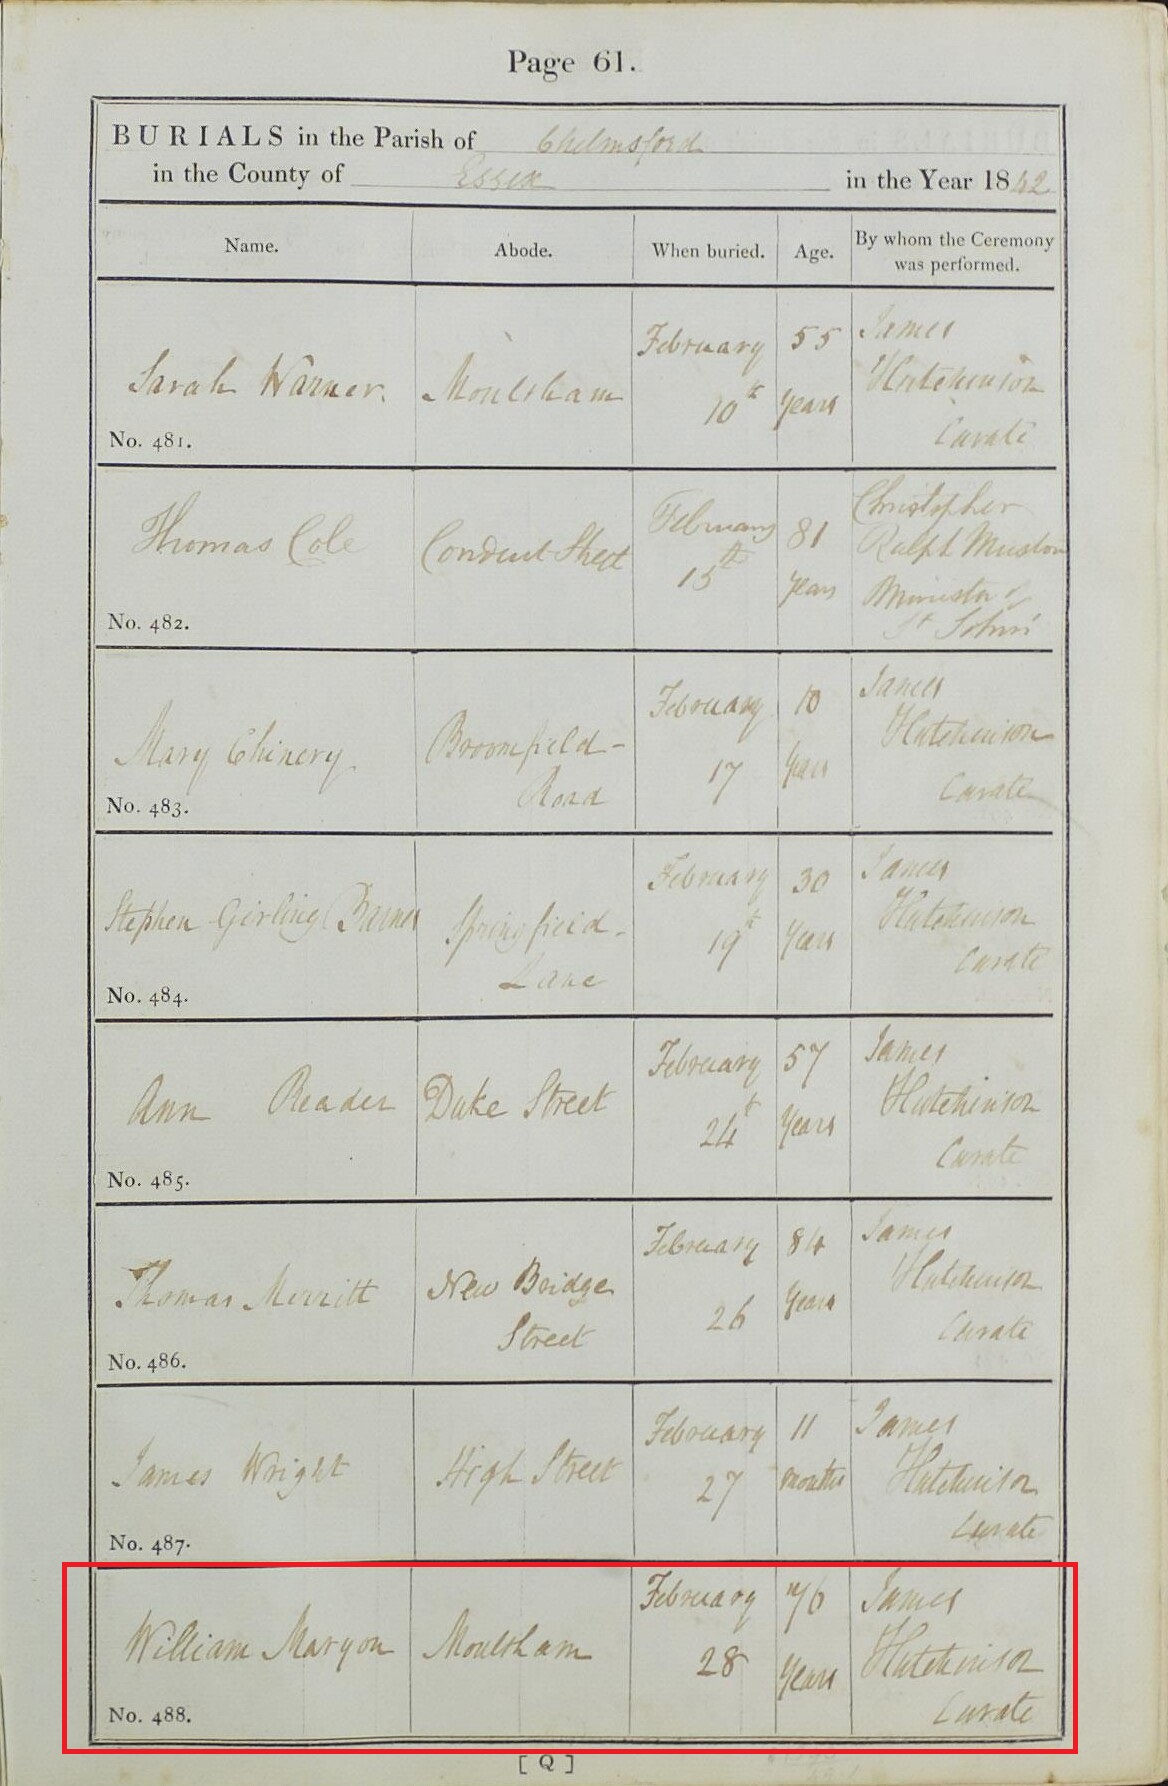 Page 61.
BURIALS in the Parish of Chelmsford
in the County of Essex in the Year 1842
Name. Abode. When buried. Age. By whom the Ceremony was performed.
Sarah Warner. Moulsham February 10th 55 years James Hutchinson Curate
No. 481.
Thomas Cole Conduit Street February 15th 81 years Christopher Ralph Muston Minister of St Johns'
No. 482.
Mary Chinery Broomfield-Road February 17 10 years James Hutchinson Curate
No. 483.
Stephen Girling Barnes Springfield-Lane February 19th 30 years James Hutchinson Curate
No. 484.
Ann Reader Duke Street February 24t 57 years James Hutchinson Curate
No. 485.
Thomas Merritt New Bridge Street February 26 84 years James Hutchinson Curate
No. 486.
James Wright High Street February 27 11 months James Hutchinson Curate
No. 487.
William Maryon Moulsham February 28 76 years James Hutchinson Curate
No. 488.
[ Q ]